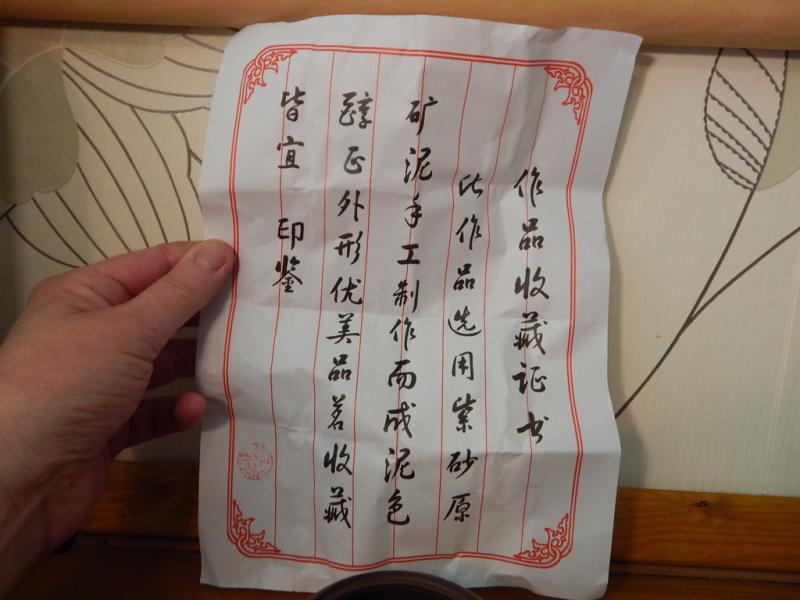 作品收藏证书
此作品选用紫砂原
矿泥手工制作而成泥色
醇正外形优美品茗收藏
皆宜 印鉴